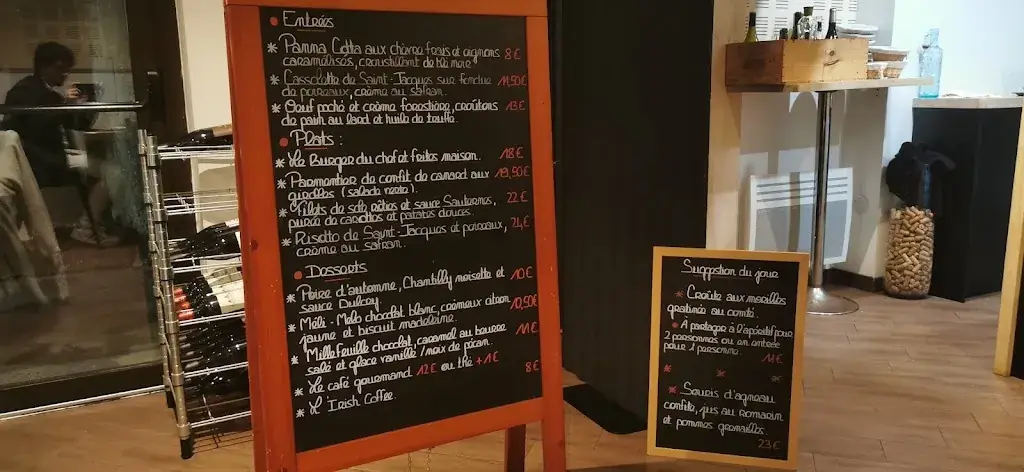 Entrées
* Panna Cotta aux chèvre frais et oignons 8€
caramélisés, croustillant de blé noir
* Cassolette de Saint-Jacques sur fondue 11,50€
de poireaux, crème au safran.
* Oeuf poché et crème forestière, croûtons 13€
de pain au lard et huile de truffe.
Plats :
* Le Burger du chef et frites maison. 18€
* Parmentier de confit de canard aux 19,50€
girolles (salade verte).
* Filets de sole rôties et sauce Sauternes, 22€
purée de carottes et patates douces.
* Risotto de Saint-Jacques et poireaux, 24€
crème au safran.
Desserts
* Poire d'automne, Chantilly noisette et 10€
sauce Dulcey.
* Méli-Mélo chocolat blanc, crémeux citron 10,50€
jaune et biscuit madeleine.
* Millefeuille chocolat, caramel au beurre 11€
salé et glace vanille/noix de pécan.
* Le café gourmand 12€ ou thé +1€
* L'Irish Coffee. 8€
Suggestion du jour
* Croûte aux morilles
gratinée au comté.
A partager à l'apéritif pour
2 personnes ou en entrée
pour 1 personne.
11€
* * *
* Souris d'agneau
confite, jus au romarin
et pommes grenailles
23€